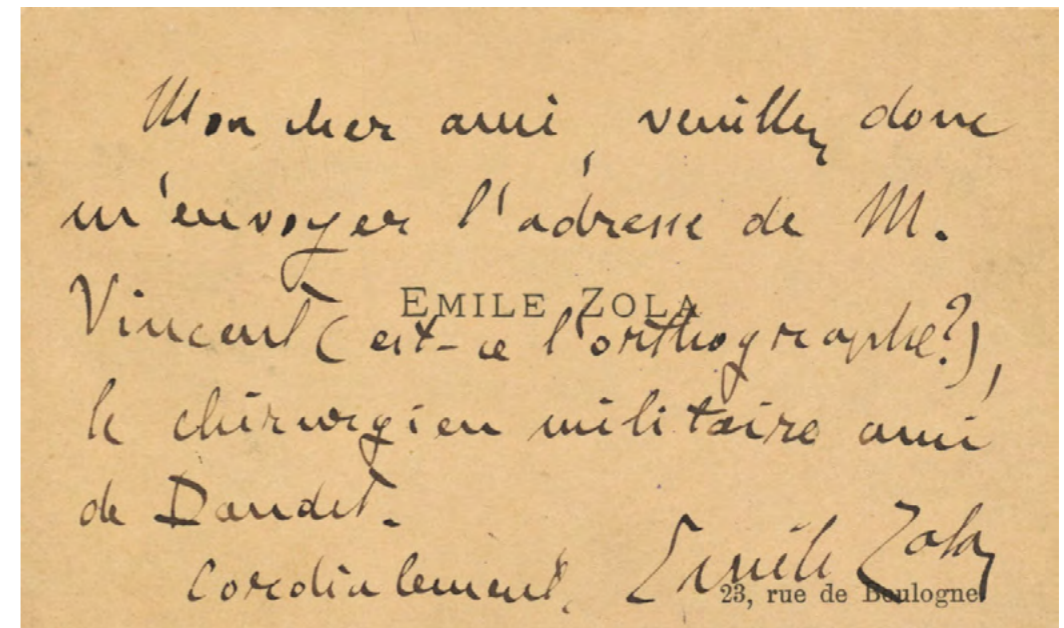 Mon cher ami, veuillez donc
m'envoyer l'adresse de M.
EMILE ZOLA
Vincent (est-ce l'orthographe?),
le chirurgien militaire ami
de Daudet.
Cordialement, Emile Zola
23, rue de Boulogne